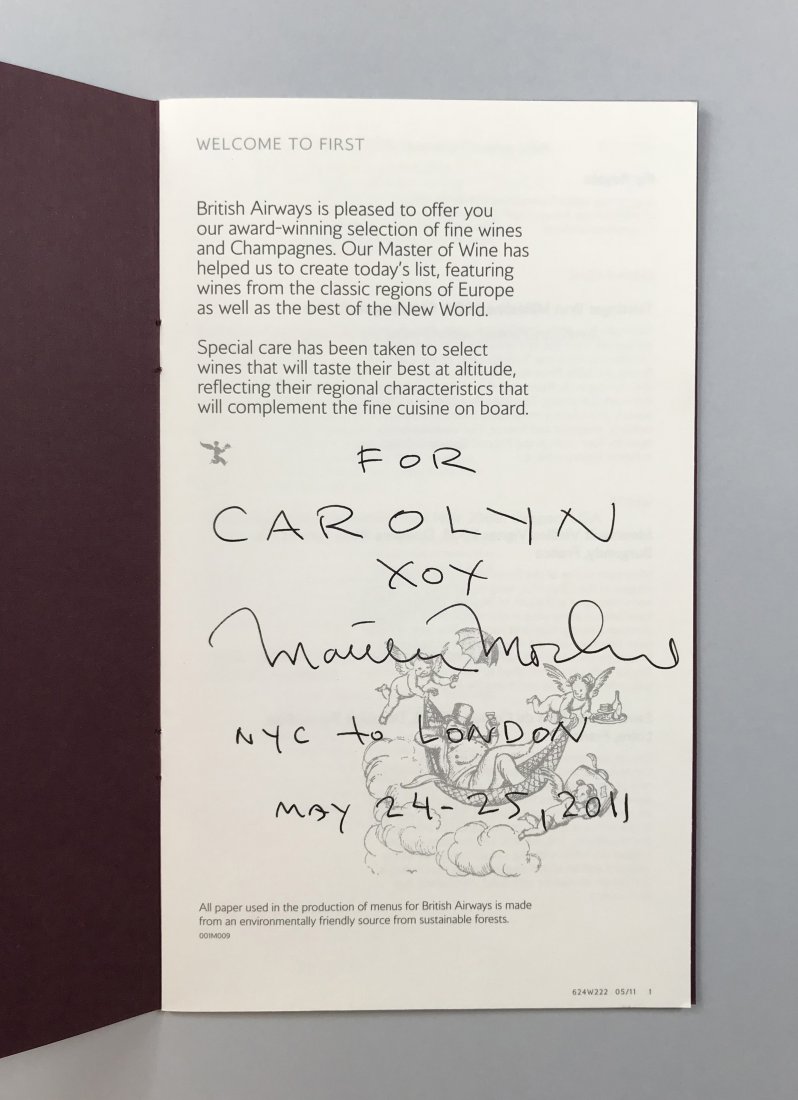 WELCOME TO FIRST
British Airways is pleased to offer you
our award-winning selection of fine wines
and Champagnes. Our Master of Wine has
helped us to create today's list, featuring
wines from the classic regions of Europe
as well as the best of the New World.
Special care has been taken to select
wines that will taste their best at altitude,
reflecting their regional characteristics that
will complement the fine cuisine on board.
FOR
CAROLYN
XOX
NYC to LONDON
MAY 24-25, 2011
All paper used in the production of menus for British Airways is made
from an environmentally friendly source from sustainable forests.
001M009
624W222 05/11 1